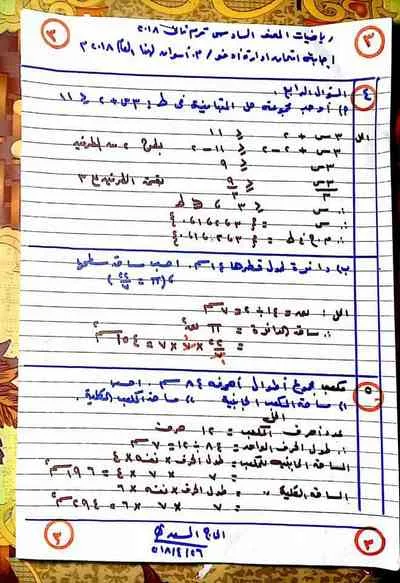 ٣ رياضيات الصف السادس ترم ثانى ٢٠١٨ ٣
إجابة امتحان إدارة إدفو / م. أسوان لهذا العام ٢٠١٨ م
٤ السؤال الرابع :
أ) أوجد مجموعة حل المتباينة فى ط : ٣س + ٢ ≤ ١١
الحل ٣س + ٢ ≤ ١١
٣س + ٢ - ٢ ≤ ١١ - ٢ بطرح ٢ من الطرفين
٣س ≤ ٩
٣س/٣ ≤ ٩/٣ بقسمة الطرفين ÷ ٣
∴ س ≤ ٣ ∈ ط
∴ س = {٣،٢،١،٠}
∴ م.ح فى ط = {٣،٢،١،٠}
ب) دائرة طول قطرها ١٤سم . احسب مساحة سطحها
(π = ٢٢/٧)
الحل : نق = ١٤ ÷ ٢ = ٧سم
∴ مساحة الدائرة = π نق٢
= ٢٢/٧ × ٧ × ٧ = ١٥٤سم٢
٥ مكعب مجموع أطوال أحرفه ٨٤سم . احسب
١) مساحة المكعب الجانبية ٢) مساحة المكعب الكلية .
الحل
عدد أحرف المكعب = ١٢ حرف
∴ طول الحرف الواحد = ٨٤ ÷ ١٢ = ٧سم
المساحة الجانبية للمكعب = طول الحرف × نفسه × ٤
= ٧ × ٧ × ٤ = ١٩٦سم٢
المساحة الكلية = طول الحرف × نفسه × ٦
= ٧ × ٧ × ٦ = ٢٩٤سم٢
٣ الحاج السيد ٣